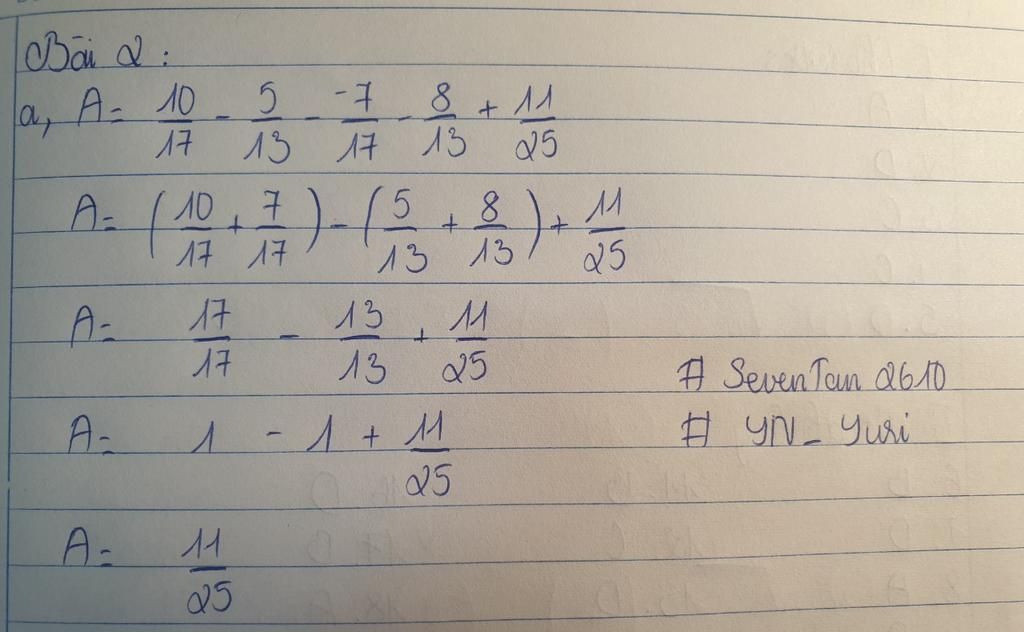 Bài 2 :
a, A = 10/17 - 5/13 - -7/17 - 8/13 + 11/25
A = (10/17 + 7/17) - (5/13 + 8/13) + 11/25
A = 17/17 - 13/13 + 11/25
# SevenTan 2610
A = 1 - 1 + 11/25
# YN_Yuri
A = 11/25